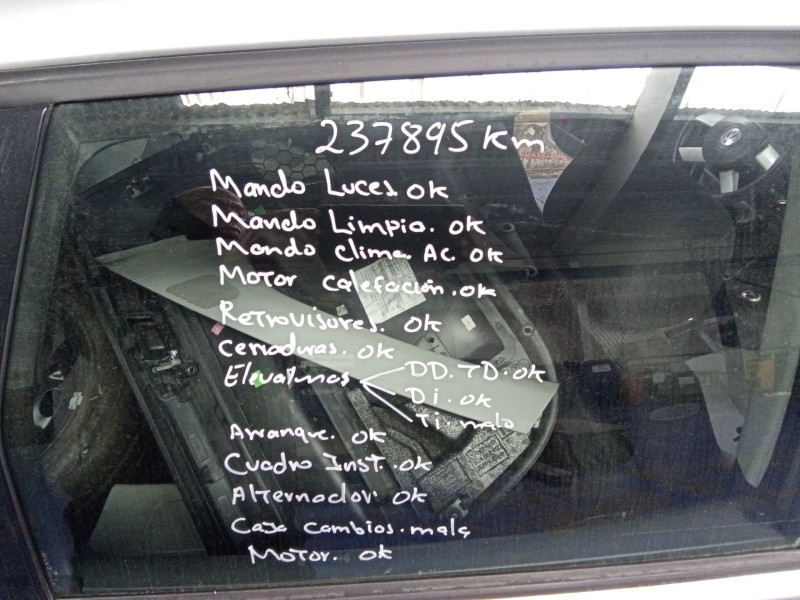 237895 Km
Mando Luces. OK
Mando Limpia. OK
Mando Clima. Ac. OK
Motor Calefación. OK
Retrovisores. OK
Cerraduras. OK
Elevalunas DD. TD. OK
Di. OK
Ti malo
Arranque. OK
Cuadro Inst. OK
Alternador. OK
Caja Cambios. mala
Motor. OK